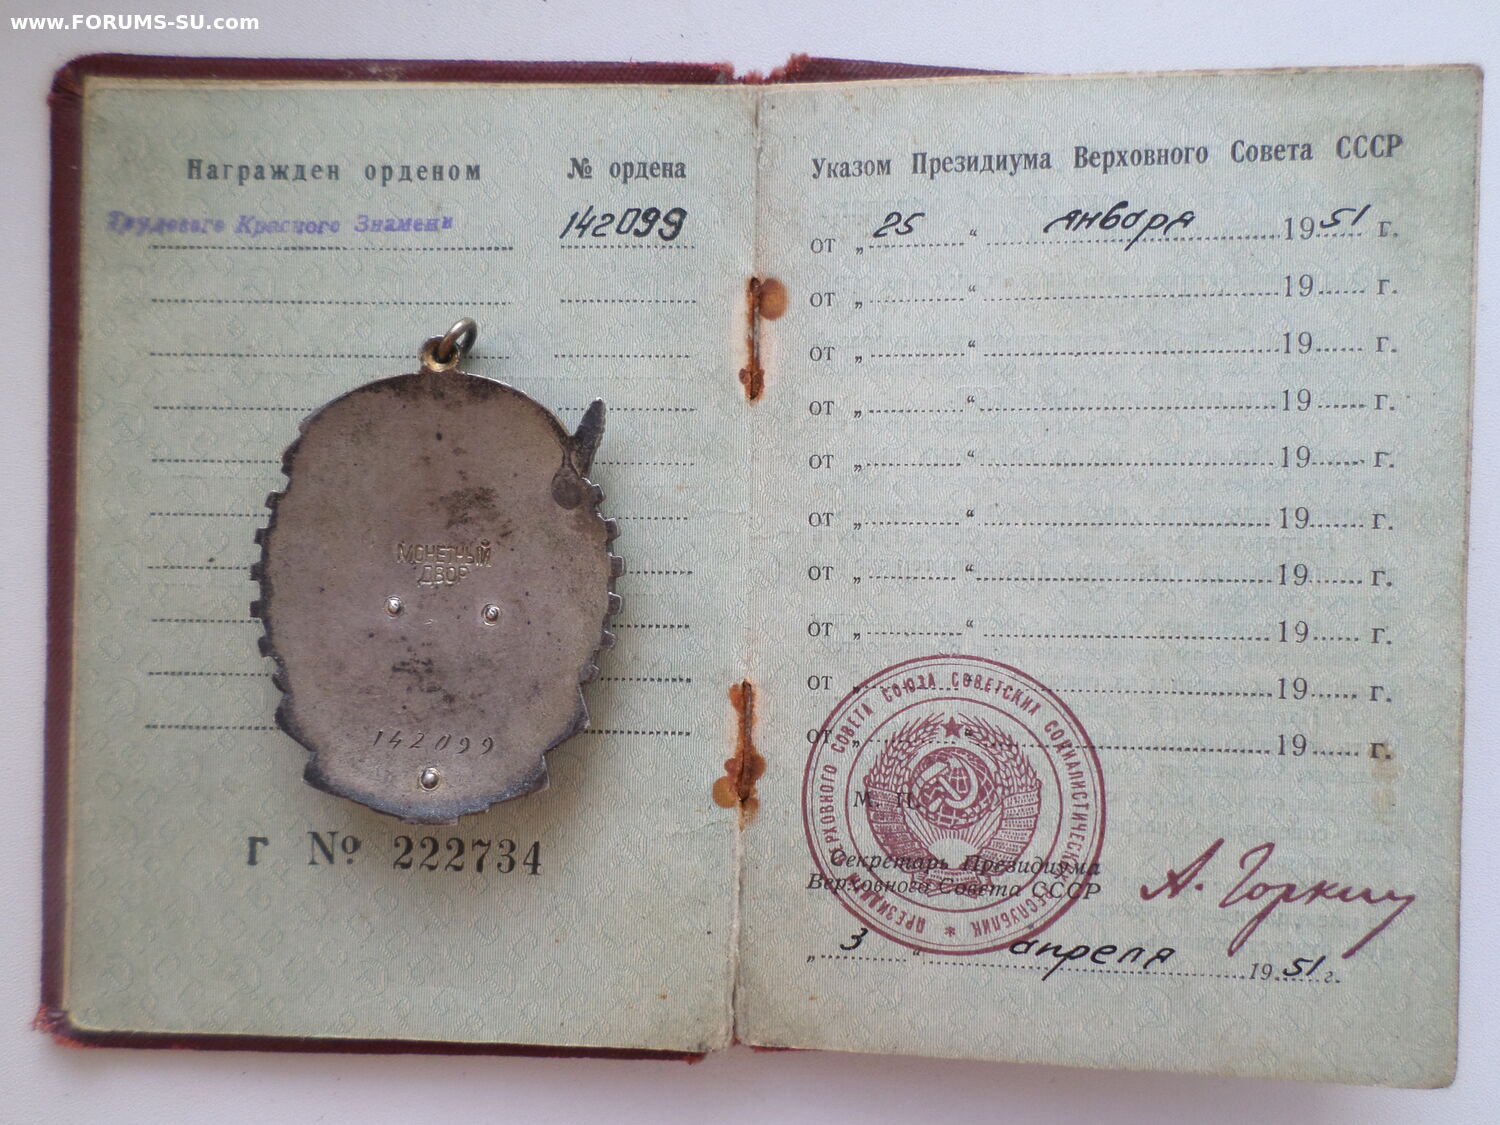 www.FORUMS-SU.com
Награжден орденом № ордена
Трудового Красного Знамени 142099
МОНЕТНЫЙ
ДВОР
142099
Г № 222734
Указом Президиума Верховного Совета СССР
от „ 25 “ января 1951 г.
от „ “ 19 г.
от „ “ 19 г.
от „ “ 19 г.
от „ “ 19 г.
от „ “ 19 г.
от „ “ 19 г.
от „ “ 19 г.
от „ “ 19 г.
от „ “ 19 г.
М. П.
ПРЕЗИДИУМ ВЕРХОВНОГО СОВЕТА СОЮЗА СОВЕТСКИХ СОЦИАЛИСТИЧЕСКИХ РЕСПУБЛИК *
Секретарь Президиума
Верховного Совета СССР
А. Горкин
„ 3 “ апреля 1951 г.